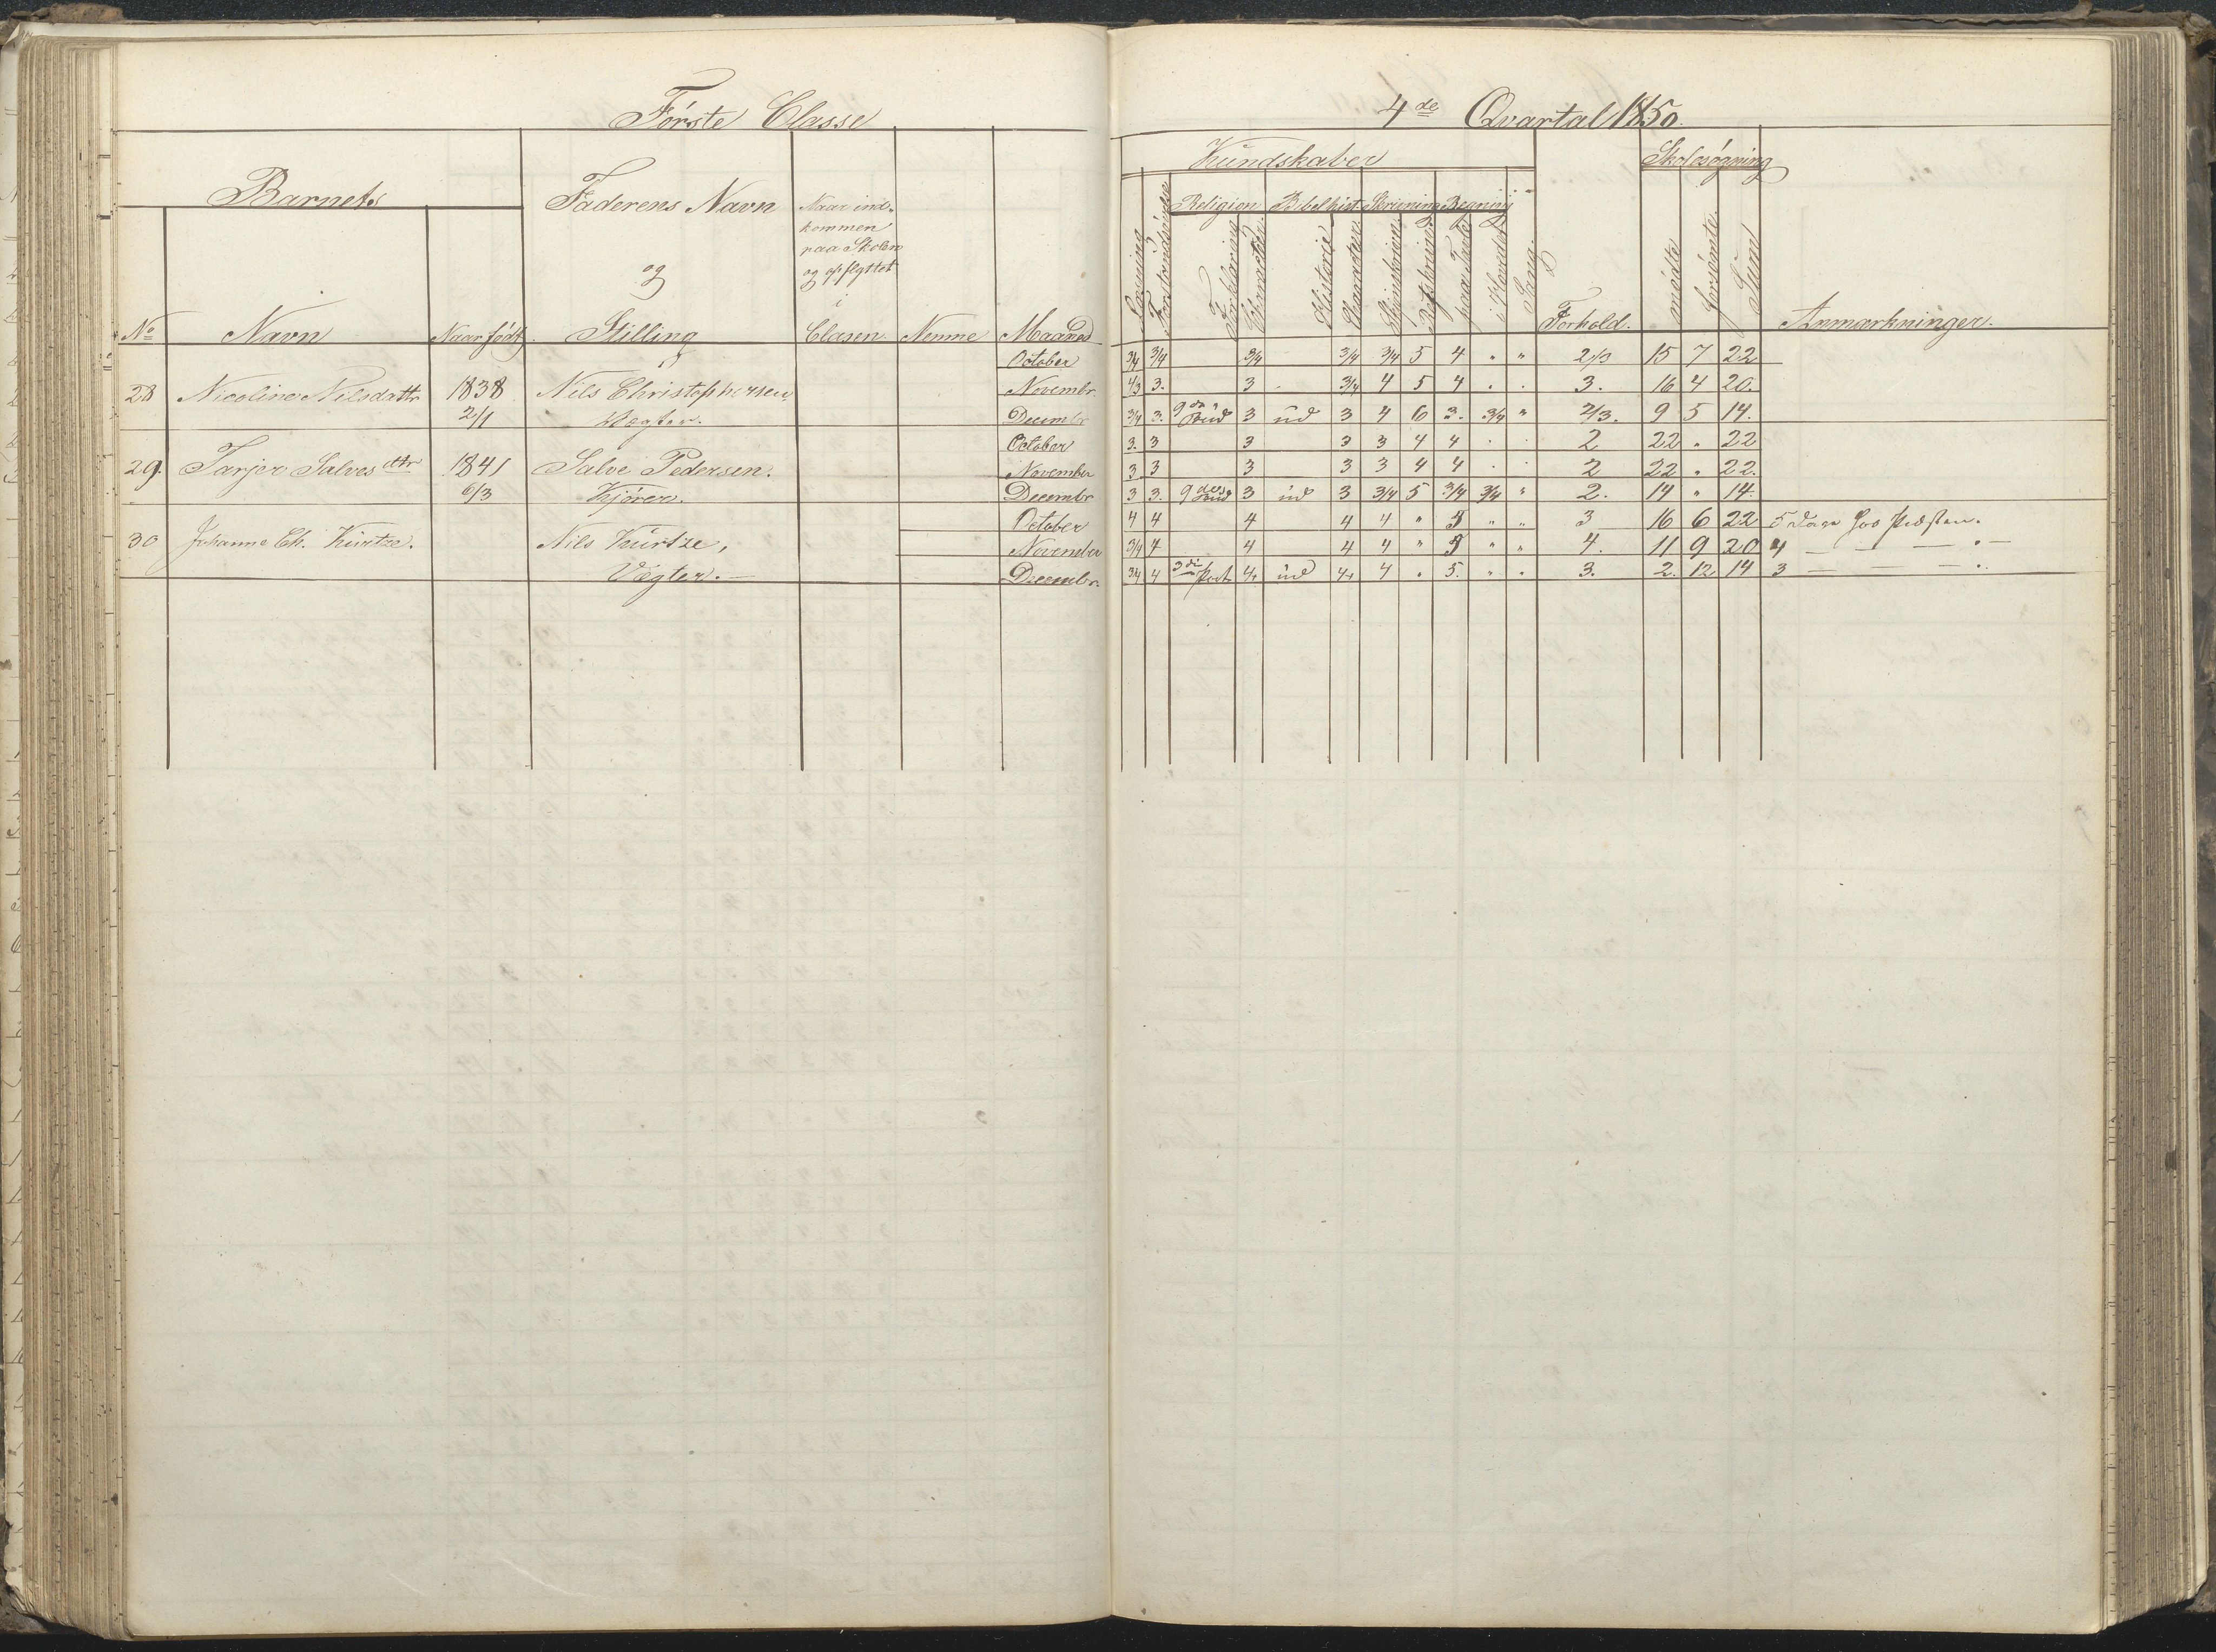 Første Classe
4de Qvartal 1850.
Barnets
Faderens Navn
og
Stilling
Naar ind-
kommen
paa Skolen
og opflyttet
i
Clasen
Nemme
Maaned
No
Navn
Naar født
Kundskaber
Skolesøgning
Religion Bibelhist. Skrivning Regning
Læsning
Forklaring
Historie
i Hovedet
Sang.
Forhold.
mødte
forsømte
Sum
Anmærkninger.
October 3/4 3/4 3/4 3/4 3/4 5 4 " " 2/3 15 7 22
28 Nicoline Nilsdattr 1838 Nils Christophersen Novembr 4/3 3. 3 3/4 4 5 4 . . 3. 16 4 20.
2/1 Vægter. Decembr 3/4 3. 9de Bud 3 ud 3 4 6 3. 3/4 " 2/3. 9 5 14.
October 3. 3 3 3 3 4 4 . . 2 22 " 22
29. Tarjer Salvesdtr 1841 Salve Pedersen. November 3 3 3 3 3 4 4 . . 2 22 " 22.
6/3 Kjører. Decembr 3 3. 9des Bud 3 ud 3 3/4 5 3/4 3/4 " 2. 14 " 14.
October 4 4 4 4 4 " 5 " " 3 16 6 22 5 Dage hos Præsten.
30 Johanne Ch. Kurtze. Nils Kurtze, November 3/4 4 4 4 4 " 5 " " 4. 11 9 20 4 — — — " —
Vægter. — Decembr. 3/4 4 3die Part 4. ud 4. 4 " 5. " " 3. 2. 12 14 3 — — — — "